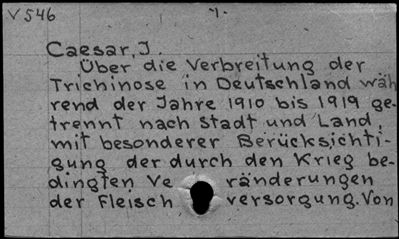 V 546
1.
Caesar, J.
Über die Verbreitung der
Trichinose in Deutschland wäh
rend der Jahre 1910 bis 1919 ge-
trennt nach Stadt und Land,
mit besonderer Berücksichti-
gung der durch den Krieg be-
dingten Veränderungen
der Fleischversorgung. Von